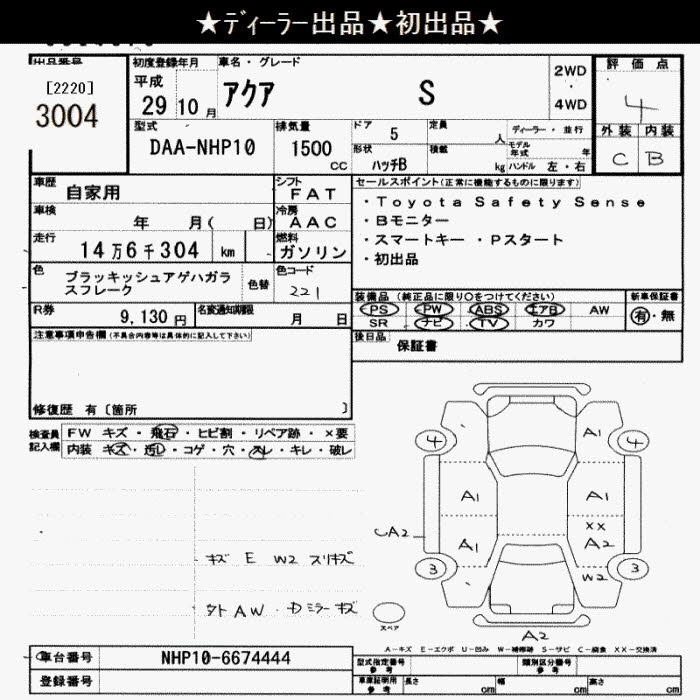 ★ディーラー出品★初出品★
出品番号
初度登録年月 車名・グレード
評価点
[2220]
3004
平成
29 10 月
アクア S
2WD
4WD
4
外装 内装
C B
型式 排気量 ドア 定員
DAA-NHP10 1500 cc
5 人
ディーラー・並行
形状 積載 モデル年式 年
ハッチB kg ハンドル 左・右
車歴 自家用
シフト FAT
セールスポイント(正常に機能するものに限ります)
車検 年 月( 日)
冷房 AAC
・Toyota Safety Sense
・Bモニター
走行 14万6千304 km
燃料 ガソリン
・スマートキー ・Pスタート
・初出品
色 ブラッキッシュアゲハガラ
スフレーク
色替
色コード
221
装備品(純正品に限り○をつけてください) 新車保証書
PS PW ABS エアB AW
有・無
R券 9,130円 名変通知期限 月 日
SR ナビ TV カワ
注意事項申告欄(不具合内容等は具体的に記入して下さい)
後日品 保証書
修復歴 有〔箇所 〕
検査員
記入欄
FW キズ・飛石・ヒビ割・リペア跡・×要
内装 キズ・汚レ・コゲ・穴・スレ・キレ・破レ
4 A1 4
A1 A1
XX
A2 A1 A2
3 W2 3
キズ E W2 スリキズ
外 AW ・Dミラーキズ
スペア
A2
A-キズ E-エクボ U-凹み W-補修跡 S-サビ C-腐食 XX-交換済
車台番号 NHP10-6674444
型式指定番号 参考 類別区分番号 参考
登録番号
車庫証明用 参考 長さ cm 幅 cm 高さ cm